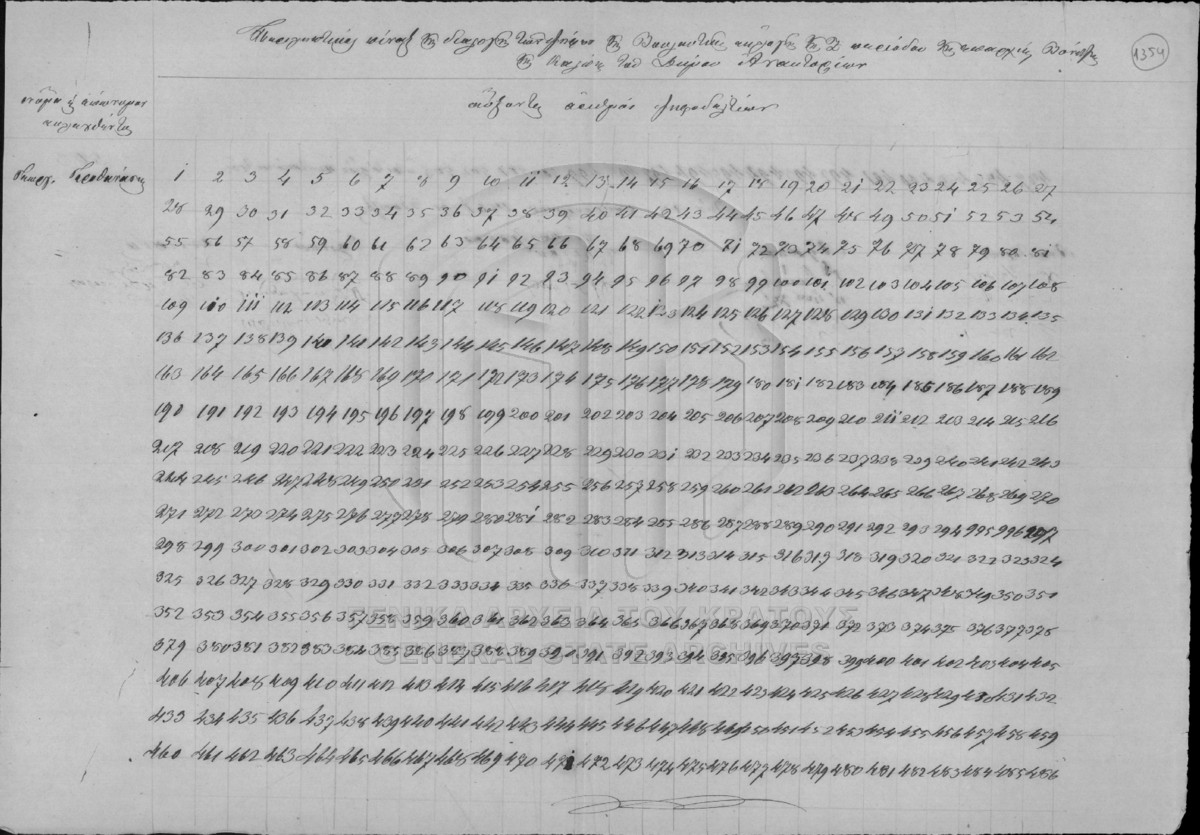 1354
πίναξ τῆς διαλογῆς τῶν ψήφων τῆς Βουλευτικῆς ἐκλογῆς τῆς Ζ περιόδου τῆς ἐπαρχίας Βονίτσης
τοῦ Δήμου Ἀνακτορίων
αὔξοντες ἀριθμοὶ ψηφοδελτίων
1 2 3 4 5 6 7 8 9 10 11 12 13 14 15 16 17 18 19 20 21 22 23 24 25 26 27
28 29 30 31 32 33 34 35 36 37 38 39 40 41 42 43 44 45 46 47 48 49 50 51 52 53 54
55 56 57 58 59 60 61 62 63 64 65 66 67 68 69 70 71 72 73 74 75 76 77 78 79 80 81
82 83 84 85 86 87 88 89 90 91 92 93 94 95 96 97 98 99 100 101 102 103 104 105 106 107 108
109 110 111 112 113 114 115 116 117 118 119 120 121 122 123 124 125 126 127 128 129 130 131 132 133 134 135
136 137 138 139 140 141 142 143 144 145 146 147 148 149 150 151 152 153 154 155 156 157 158 159 160 161 162
163 164 165 166 167 168 169 170 171 172 173 174 175 176 177 178 179 180 181 182 183 184 185 186 187 188 189
190 191 192 193 194 195 196 197 198 199 200 201 202 203 204 205 206 207 208 209 210 211 212 213 214 215 216
217 218 219 220 221 222 223 224 225 226 227 228 229 230 231 232 233 234 235 236 237 238 239 240 241 242 243
244 245 246 247 248 249 250 251 252 253 254 255 256 257 258 259 260 261 262 263 264 265 266 267 268 269 270
271 272 273 274 275 276 277 278 279 280 281 282 283 284 285 286 287 288 289 290 291 292 293 294 295 296 297
298 299 300 301 302 303 304 305 306 307 308 309 310 311 312 313 314 315 316 317 318 319 320 321 322 323 324
325 326 327 328 329 330 331 332 333 334 335 336 337 338 339 340 341 342 343 344 345 346 347 348 349 350 351
352 353 354 355 356 357 358 359 360 361 362 363 364 365 366 367 368 369 370 371 372 373 374 375 376 377 378
379 380 381 382 383 384 385 386 387 388 389 390 391 392 393 394 395 396 397 398 399 400 401 402 403 404 405
406 407 408 409 410 411 412 413 414 415 416 417 418 419 420 421 422 423 424 425 426 427 428 429 430 431 432
433 434 435 436 437 438 439 440 441 442 443 444 445 446 447 448 449 450 451 452 453 454 455 456 457 458 459
460 461 462 463 464 465 466 467 468 469 470 471 472 473 474 475 476 477 478 479 480 481 482 483 484 485 486
ΓΕΝΙΚΑ ΑΡΧΕΙΑ ΤΟΥ ΚΡΑΤΟΥΣ
GENERAL STATE ARCHIVES